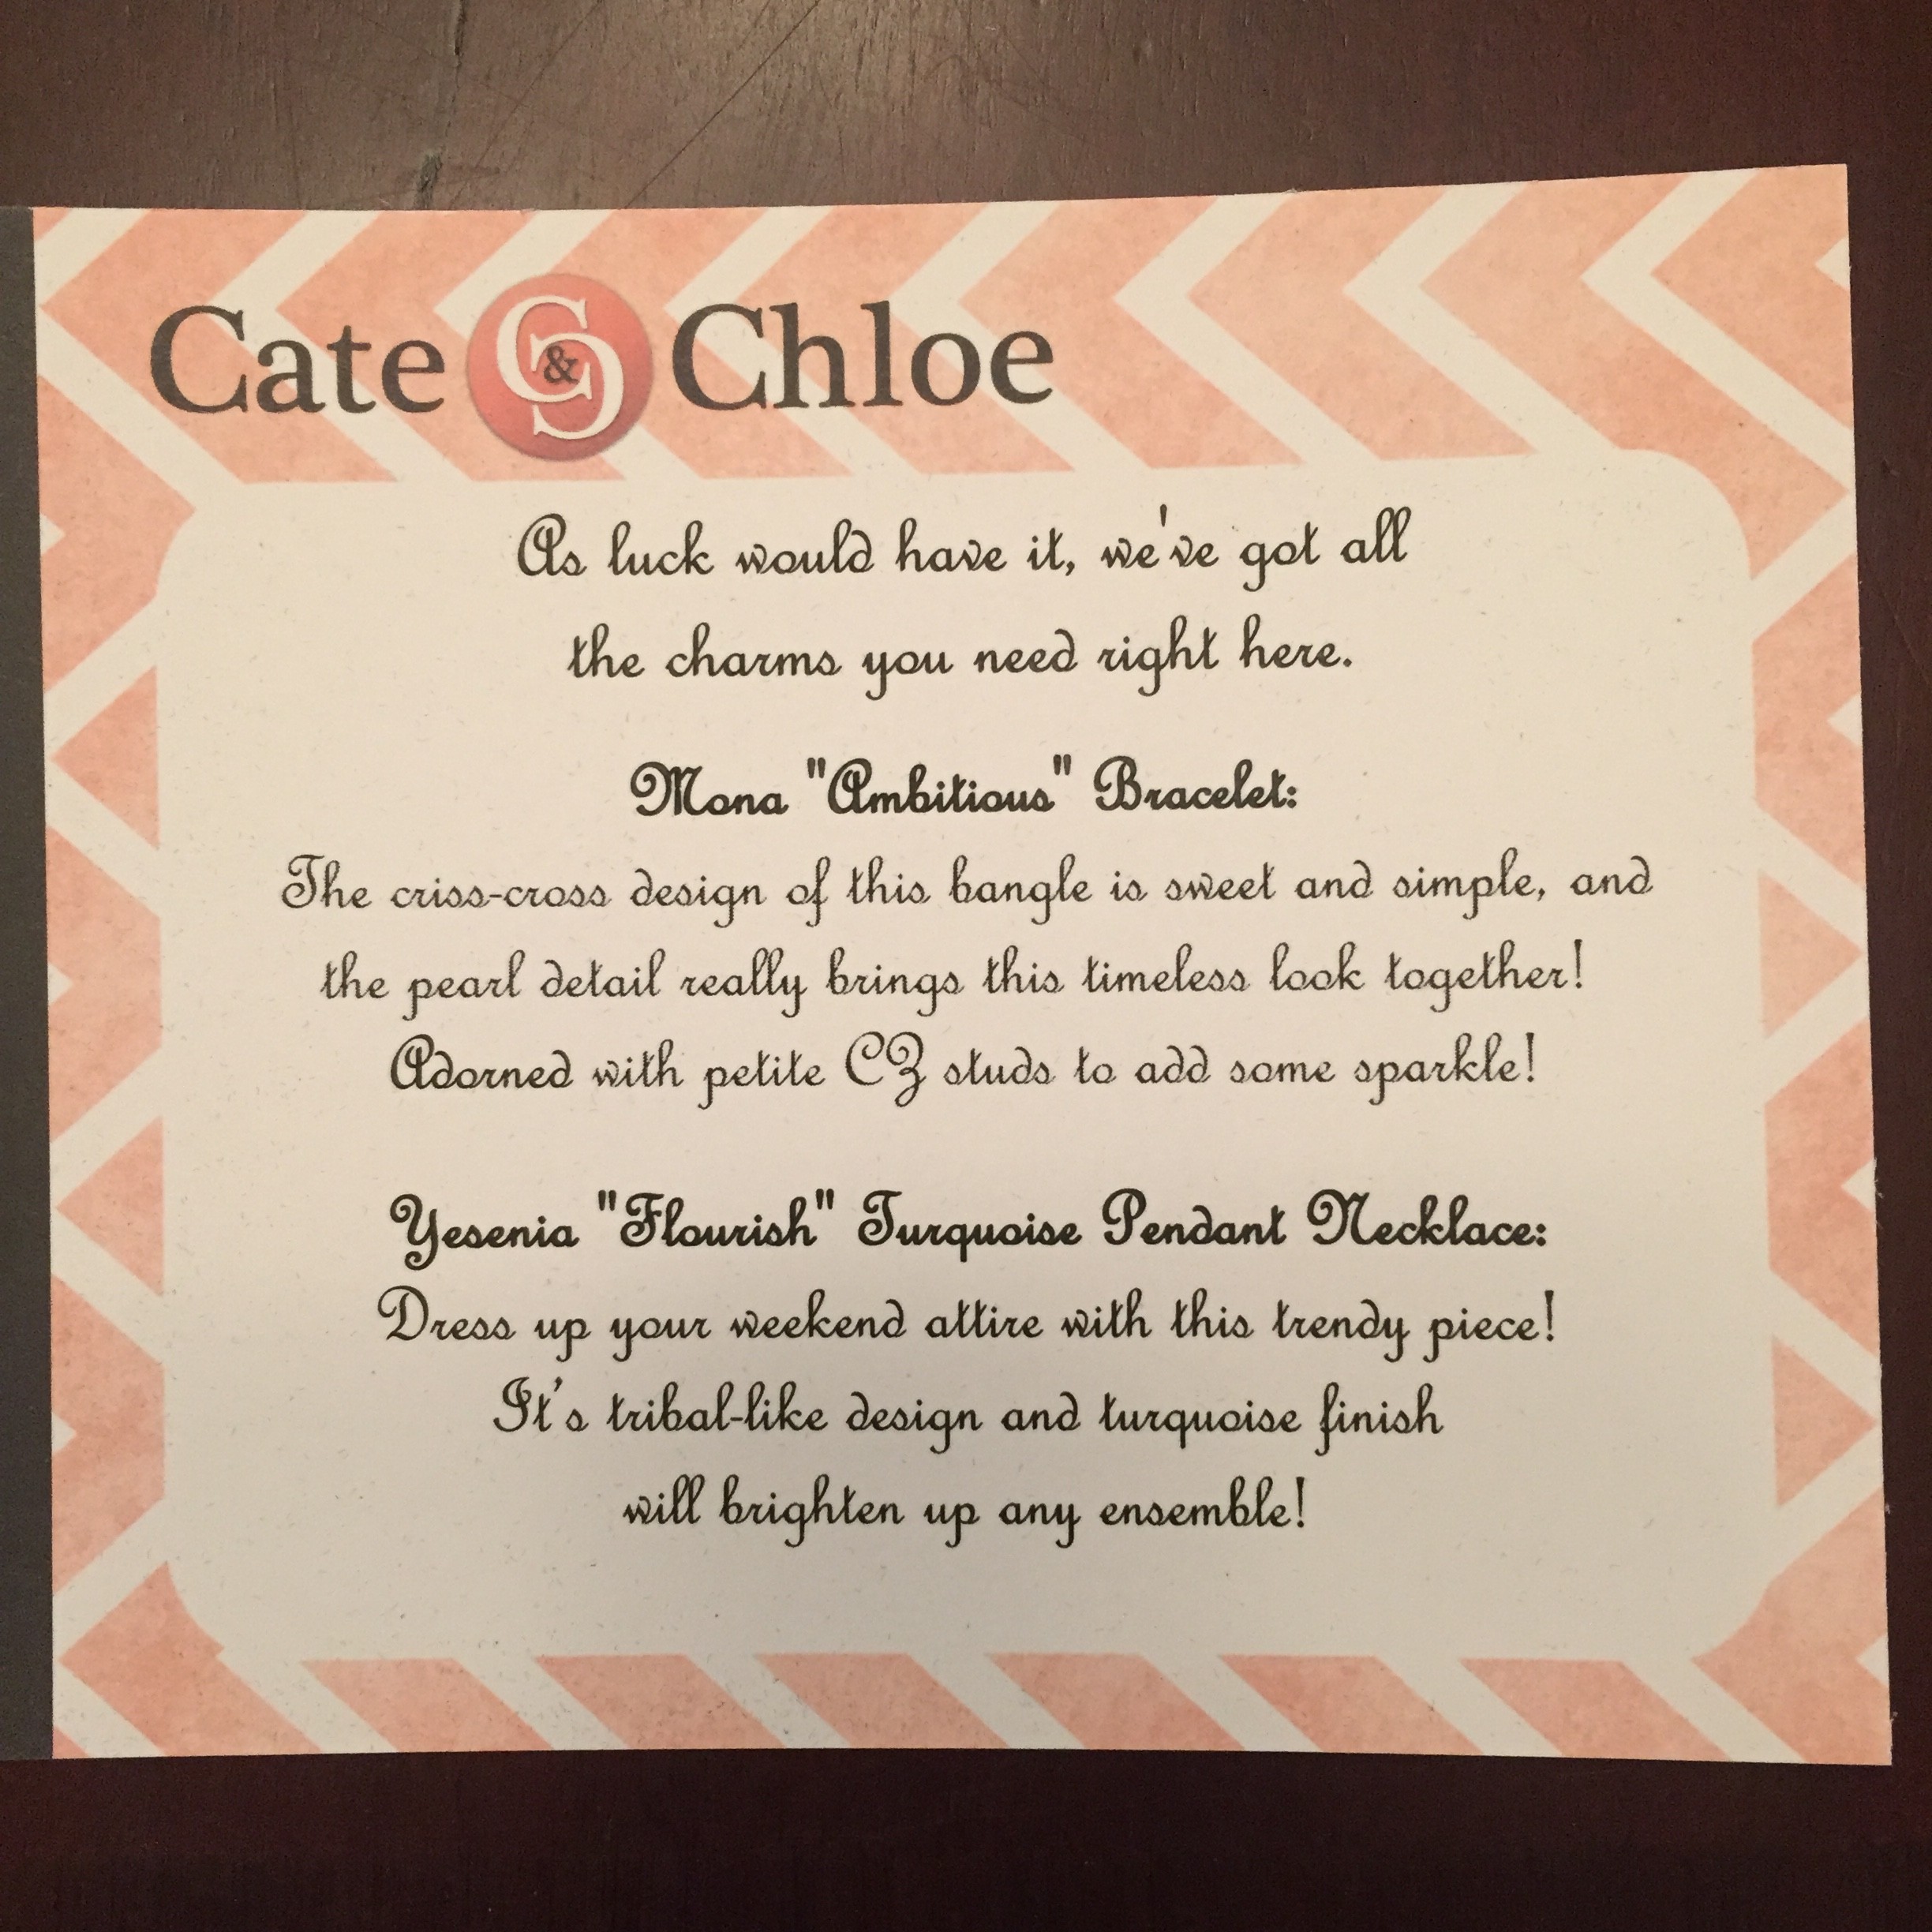 Cate C&C Chloe
As luck would have it, we've got all
the charms you need right here.
Mona "Ambitious" Bracelet:
The criss-cross design of this bangle is sweet and simple, and
the pearl detail really brings this timeless look together!
Adorned with petite CZ studs to add some sparkle!
Yesenia "Flourish" Turquoise Pendant Necklace:
Dress up your weekend attire with this trendy piece!
It's tribal-like design and turquoise finish
will brighten up any ensemble!